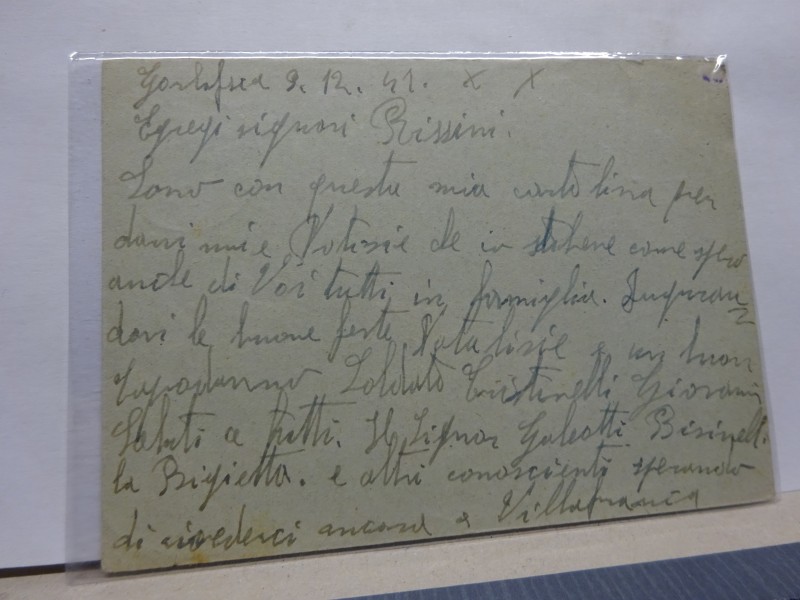 9. 12. 41. x x
Egregi signori Rissini.
Sono con questa mia cartolina per
darvi mie Notizie che io sto bene come spero
anche di Voi tutti in famiglia. Auguran
dovi le buone feste Natalisie e un buon
Capodanno Soldato Cristinelli Giovanni
Saluti a tutti. Il Signor Galeotti
la e altri conoscienti sperando
di rivederci ancora a Villafranca